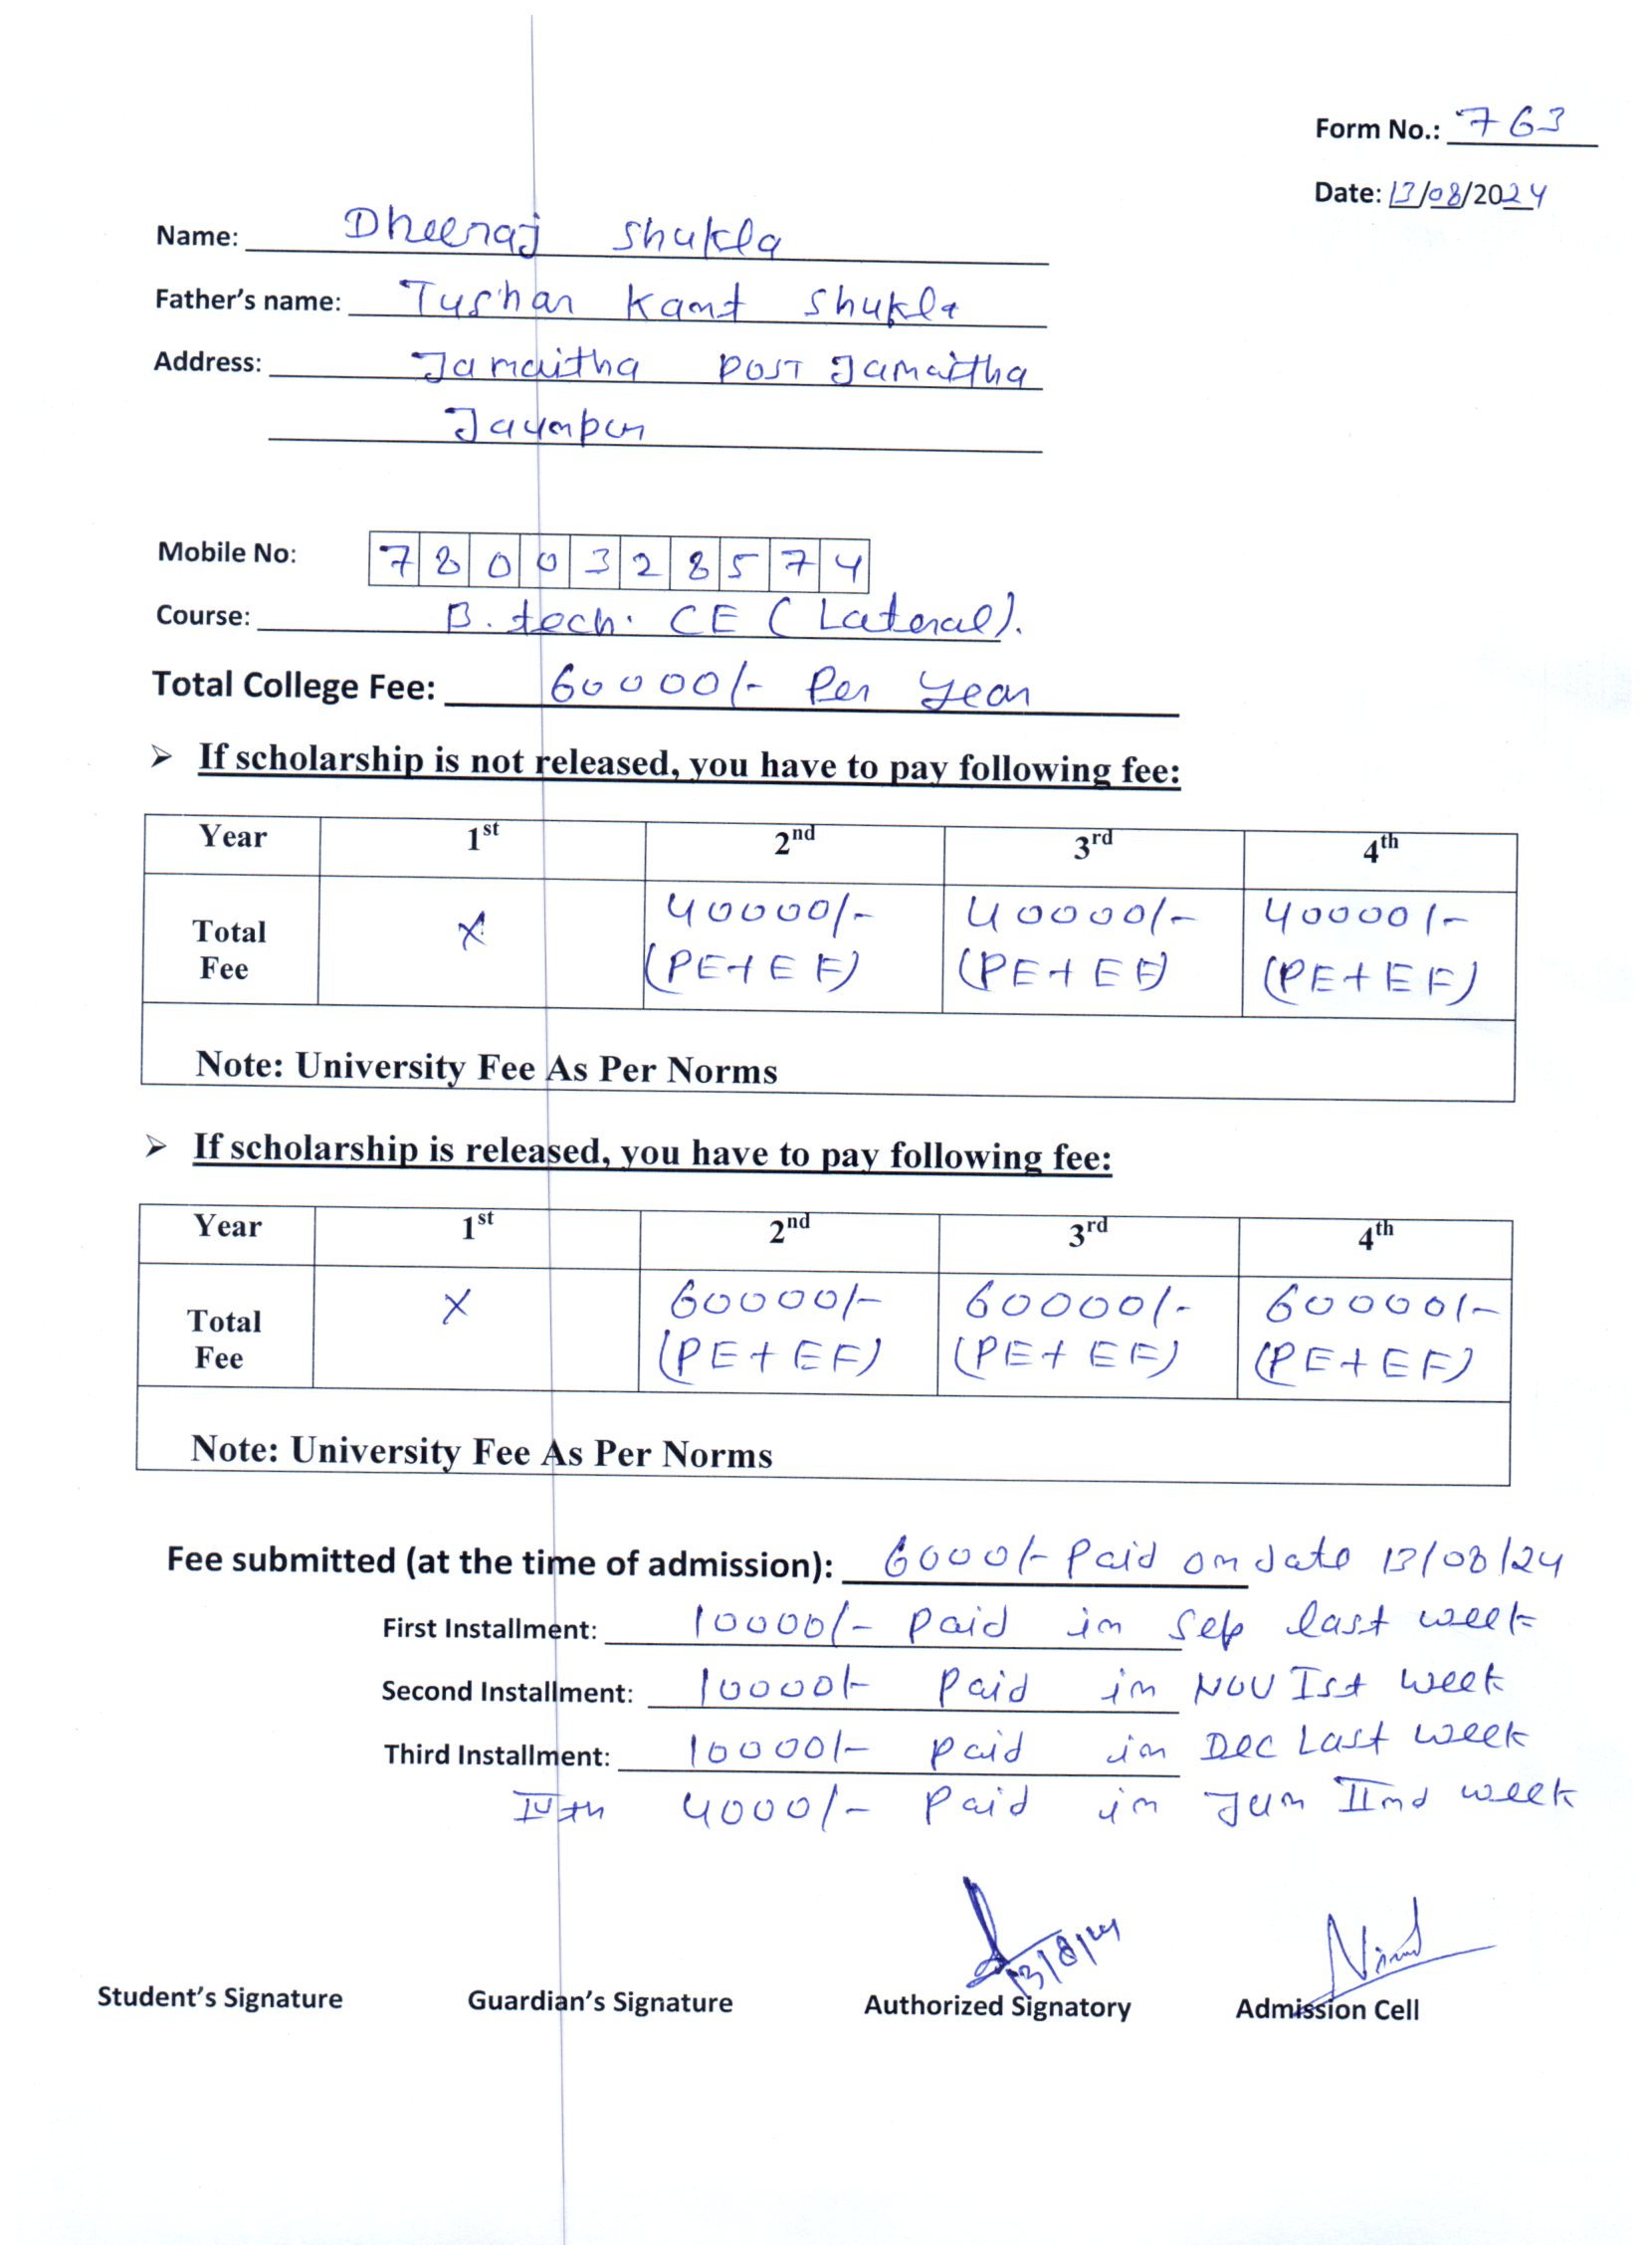 Form No.: 763
Date: 13/08/2024
Name: Dheeraj Shukla
Father's name: Tushar Kant Shukla
Address: Jamaitha POST Jamaitha
Jaunpur
Mobile No: 7800328574
Course: B.tech. CE (Lateral).
Total College Fee: 60000/- Per Year
➢ If scholarship is not released, you have to pay following fee:
Year 1st 2nd 3rd 4th
Total Fee X 40000/- (PE+EF) 40000/- (PE+EF) 40000/- (PE+EF)
Note: University Fee As Per Norms
➢ If scholarship is released, you have to pay following fee:
Year 1st 2nd 3rd 4th
Total Fee X 60000/- (PE+EF) 60000/- (PE+EF) 60000/- (PE+EF)
Note: University Fee As Per Norms
Fee submitted (at the time of admission): 6000/- Paid on date 13/08/24
First Installment: 10000/- Paid in Sep last week
Second Installment: 10000/- Paid in NOV Ist week
Third Installment: 10000/- Paid in DEC Last week
IVth 4000/- Paid in Jun IInd week
13/8/24
Student's Signature Guardian's Signature Authorized Signatory Admission Cell